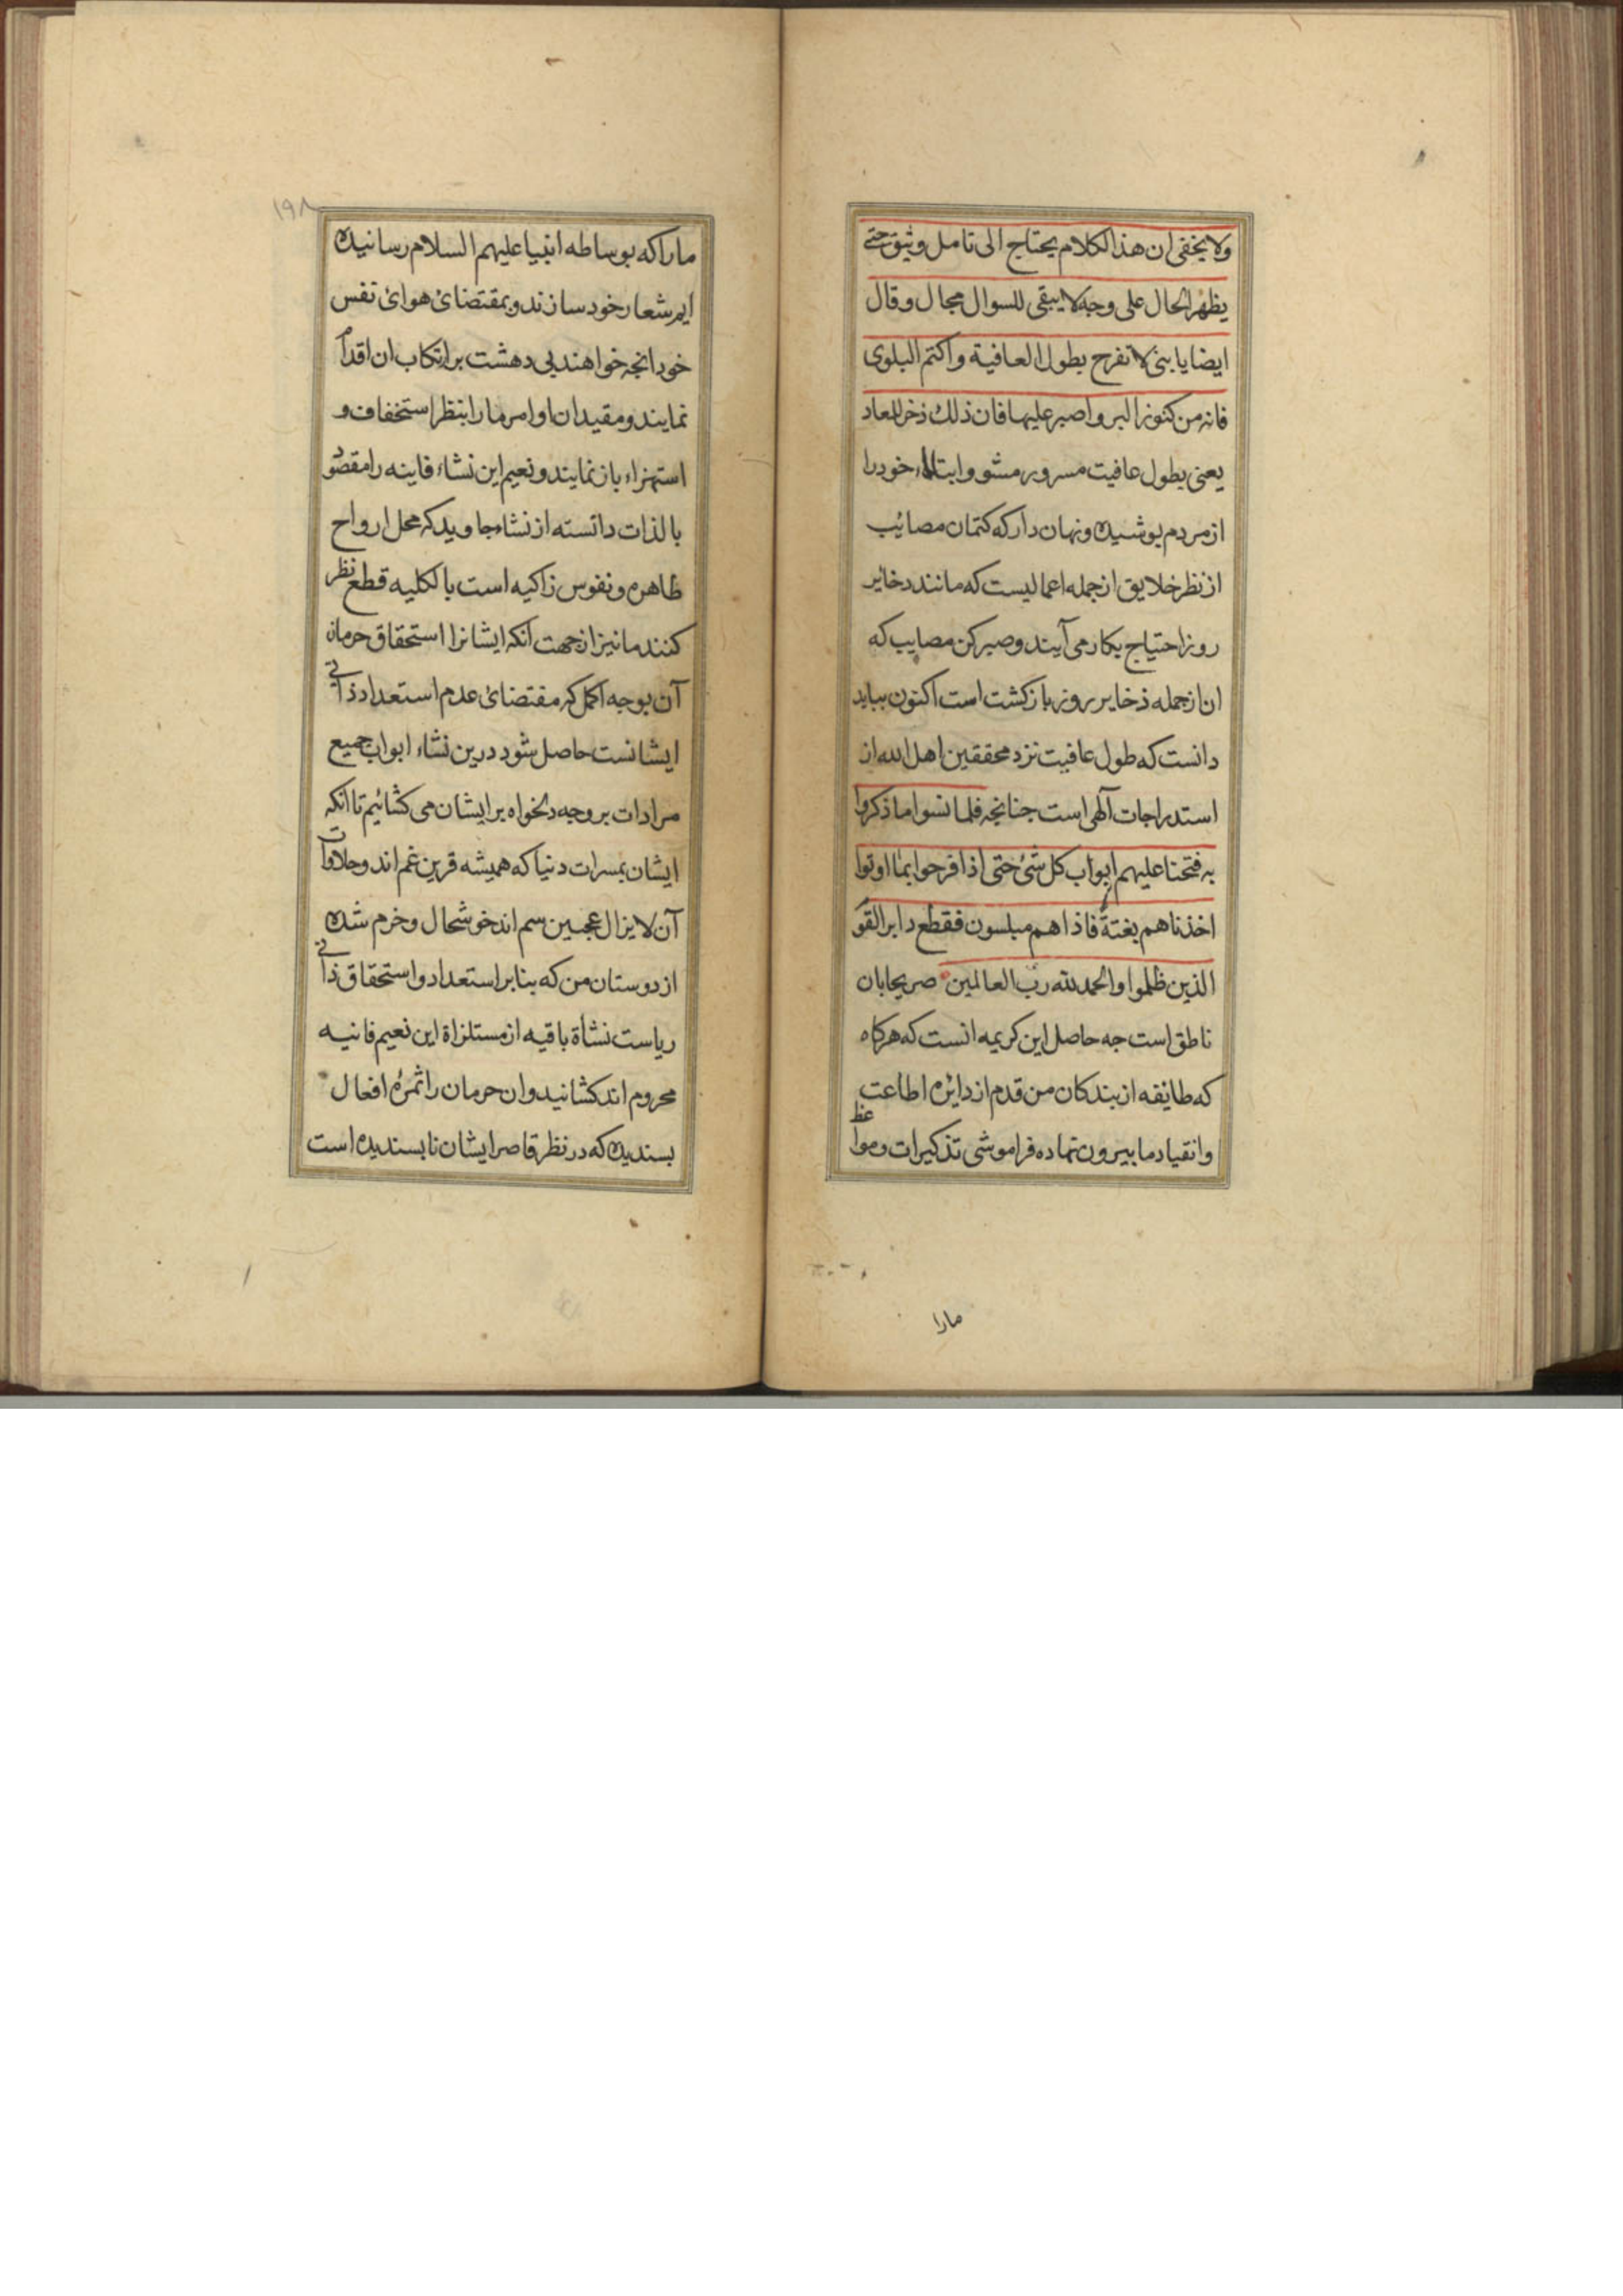 ولا یخفی ان هذا الکلام یحتاج الی تامل وثیق حتے
یظهر الحال علی وجه لا یبقی للسوال مجال وقال
ایضا یا بنی لا تفرح بطول العافیة واکتم البلوی
فانه من کنوز البر واصبر علیها فان ذلك ذخر للمعاد
یعنی بطول عافیت مسرور مشو وابتلاء خود را
از مردم بوشیده ونهان دار که کتمان مصائب
از نظر خلایق از جمله اعمالیست که مانند دخائر
روز احتیاج بکار می آیند وصبر کن مصایب که
ان از جمله ذخایر روز بازکشت است اکنون بباید
دانست که طول عافیت نزد محققین اهل الله از
استدراجات آلهی است جنانجه فلما نسوا ما ذکروا
به فتحنا علیهم ابواب کل شئ حتی اذا فرحوا بما اوتوا
اخذناهم بغتة فاذا هم مبلسون فقطع دابر القوم
الذین ظلموا والحمد لله رب العالمین صریحا بان
ناطق است جه حاصل این کریمه انست که هرکاه
که طایفه از بندکان من قدم از دایره اطاعت
وانقیاد ما بیرون نهاده فراموشی تذکیرات ومواعظ
مارا
۱۹۸
ما را که بوساطه انبیا علیهم السلام رسانیده
ایم شعار خود سازند وبمقتضائ هوائ نفس
خود انجه خواهند بی دهشت بر ارتکاب ان اقدام
نمایند ومقیدان اوامر ما را بنظر استخفاف و
استهزاء باز نمایند ونعیم این نشاء فاینه را مقصود
بالذات دانسته از نشاء جاوید که محل ارواح
طاهره ونفوس زاکیه است بالکلیه قطع نظر
کنند ما نیز از جهت آنکه ایشانرا استحقاق حرمان
آن بوجه اکمل که مفتضائ عدم استعداد ذاتے
ایشانست حاصل شود درین نشاء ابواب جمیع
مرادات بر وجه دلخواه بر ایشان می کشائیم تا آنکه
ایشان بمسرات دنیا که همیشه قرین غم اند وحلاوات
آن لا یزال عجین سم اند خوشحال وخرم شده
از دوستان من که بنا بر استعداد واستحقاق ذاتے
ریاست نشأة باقیه از مستلزاة این نعیم فانیه
محروم اند کشانید وان حرمان را ثمرۀ افعال
بسندیده که در نظر قاصر ایشان نابسندیده است